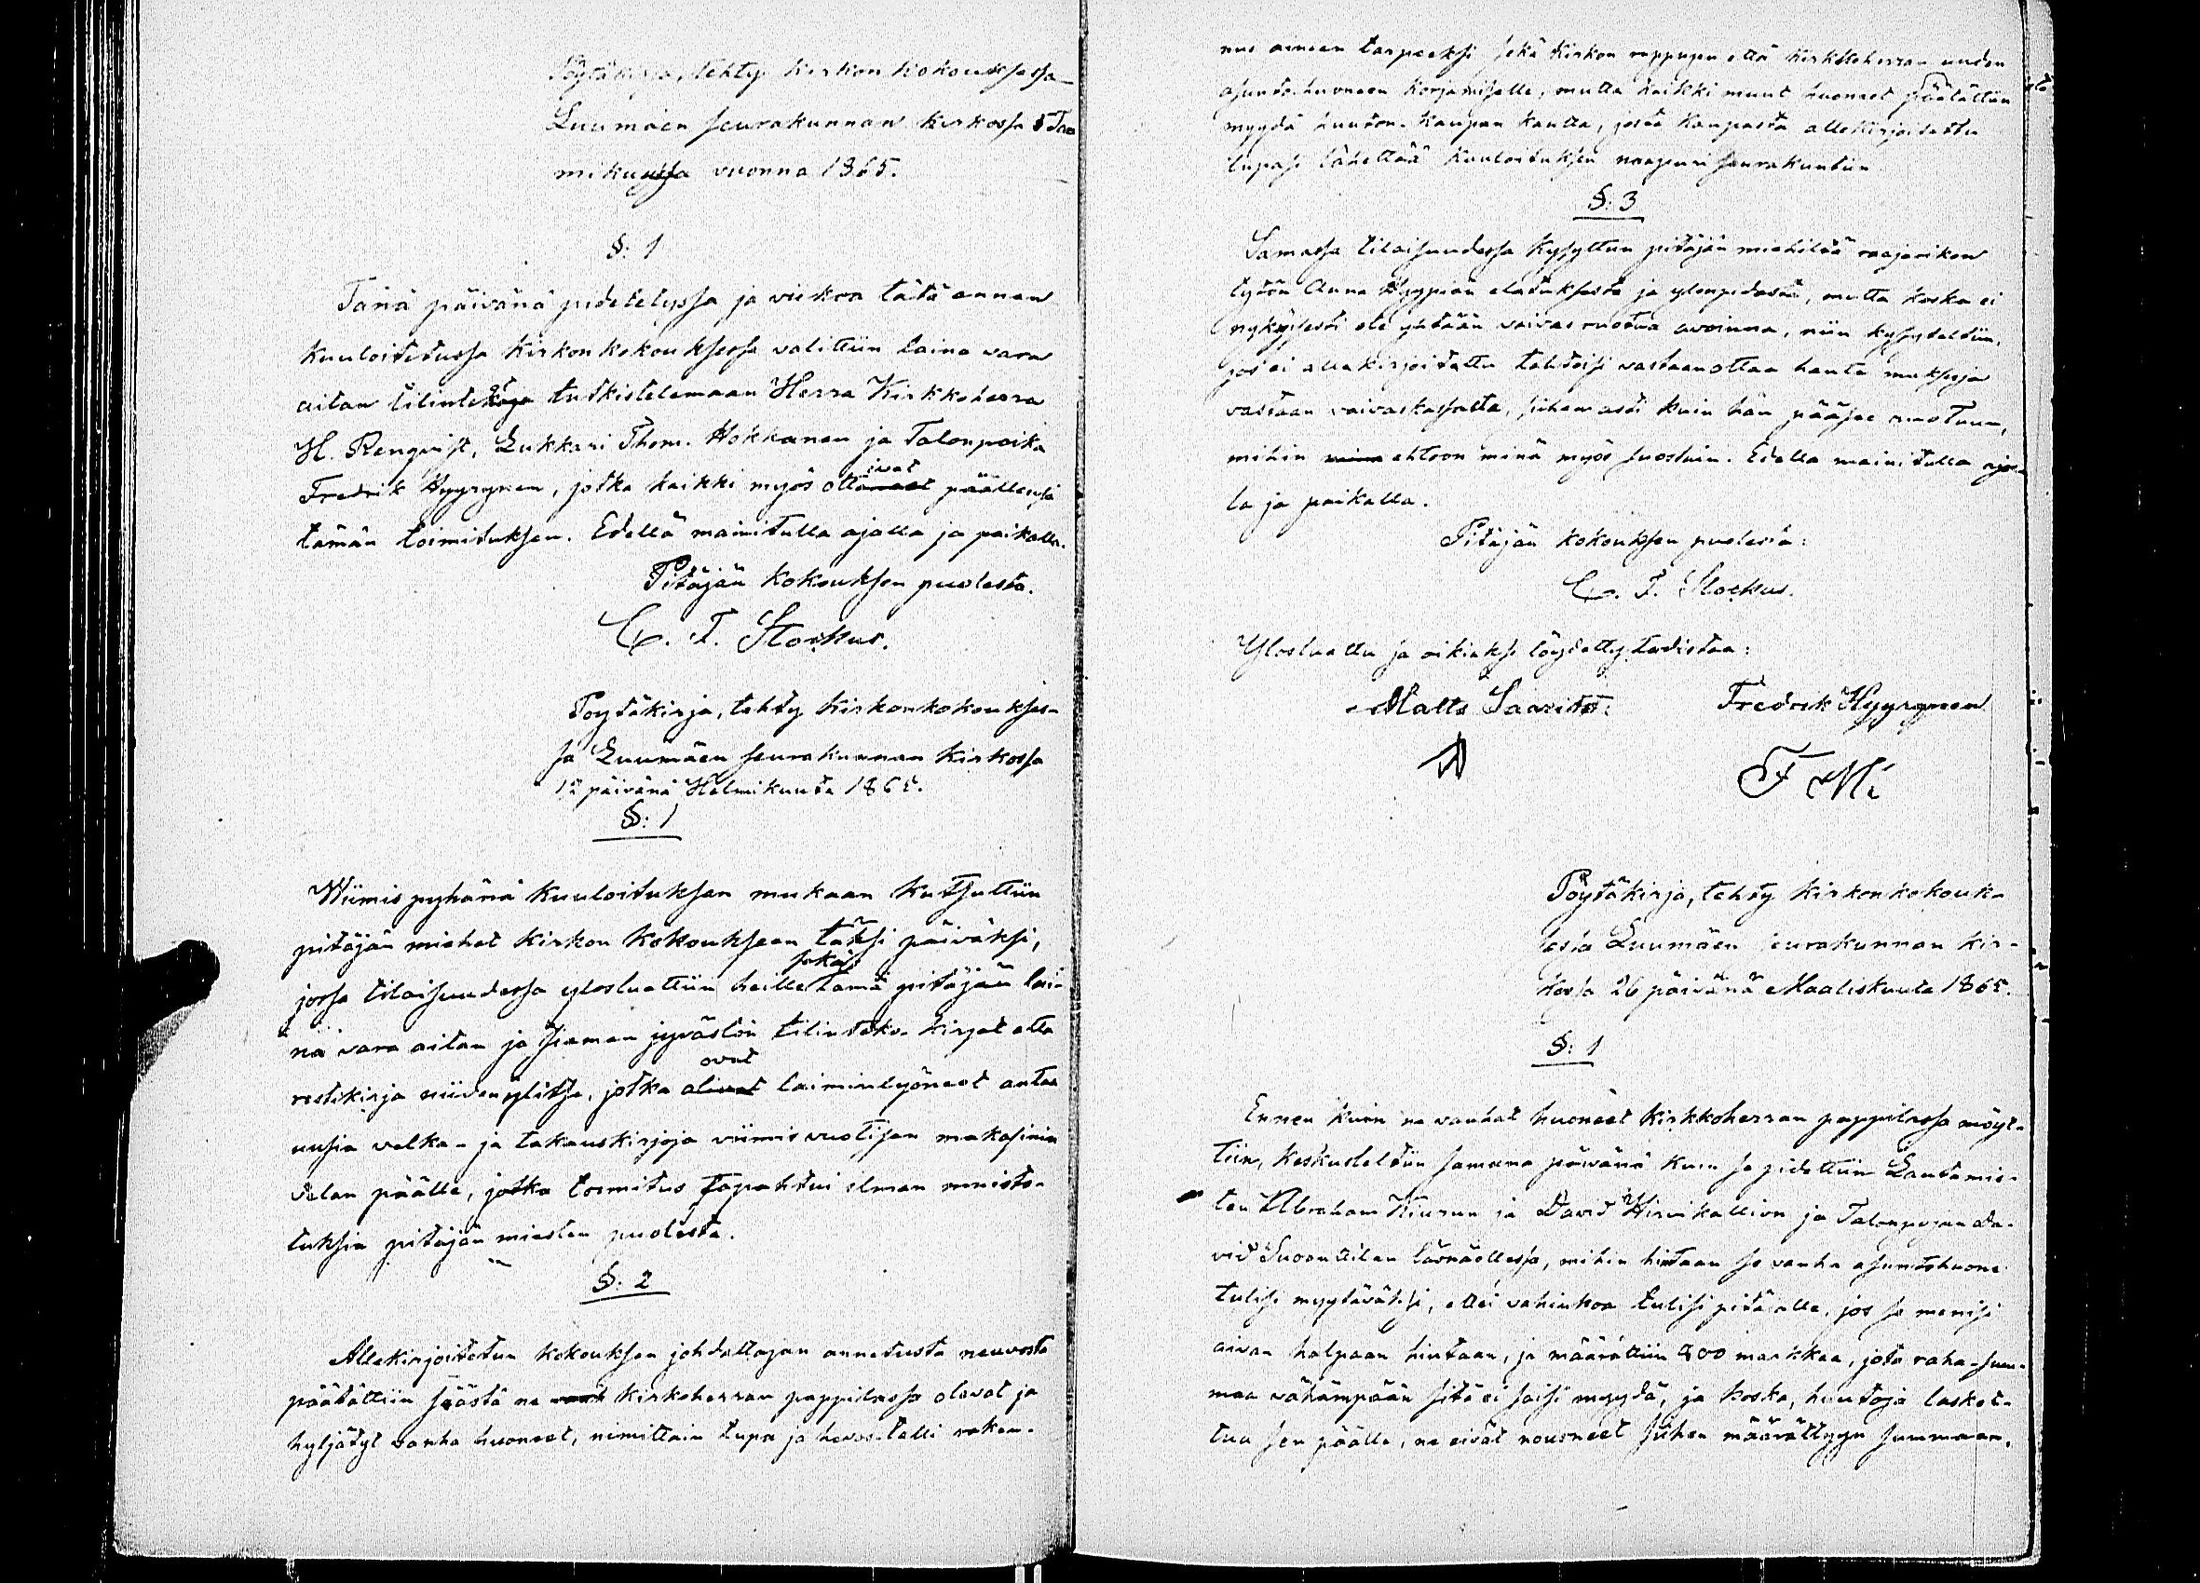 Pöytäkirja, tehty Kirkon kokouksessa
Luumäen seurakunnan kirkossa Tam
mikuussa vuonna 1865.
§: 1
Tänä päivänä pidetetyssa ja viikoa tätä ennen
kuuloitetussa Kirkonkokouksessa valittiin laina vara
aitan tilinteköjä tutkistelemaan Herra Kirkkoherra
H. Renqvist, Lukkari Thom. Hokkanen ja Talonpoika
Fredrik Hyyrynen, jotka kaikki myös ottivat päällensä
tämän toimituksen. Edellä mainitulla ajalla ja paikalla.
Pitäjän kokouksen puolesta.
C. F. Stockus.
Pöytäkirja, tehty Kirkonkokoukses-
sa Luumäen seurakunnan Kirkossa
12 päivänä Helmikuuta 1865.
§: 1
Wiimis pyhänä kuuloituksen mukaan kutsuttiin
pitäjän miehet kirkon kokoukseen täksi päiväksi,
jossa tilaisuudessa ylösluettiin heille sekä tämä pitäjän lai-
na vara aitan ja siemen jyvästön tilinteko kirjat että
restikirja niiden ylitse, jotka ovat laiminlyöneet antaa
uusia velka- ja takauskirjoja viimis vuotisen makasinin
velan päälle, jotka toimitus tapahtui ilman muistu-
tuksia pitäjän miesten puolesta.
§: 2
Allekirjoitetun kokouksen johdattajan annetusta neuvosta
päätättiin säästä ne kirkoherran pappilassa olevat ja
hyljätyt vanha huoneet, nimittäin tupa ja hevostalli raken-
nus aineen tarpeeksi sekä Kirkon rappujen että Kirkkoherran uuden
asuntohuoneen korjamiselle, mutta kaikki muut huoneet päätättiin
myydä huuton-kaupan kautta, josta kaupasta allekirjoitettu
lupasi lähettää kuuloituksen naapuri seurakuntiin
§: 3
Samassa tilaisuudessa kysyttiin pitäjän miehiltä raajarikon
tytön Anna Hyypiän elatuksesta ja ylöspidosta, mutta koska ei
nykyisesti ole yhtään vaivas ruotua avoinna, niin kysysteltiin,
jos ei allekirjoitettu tahtoisi vastaanottaa häntä maksoja
vastaan vaivaskassasta, siihen asti kuin hän pääsee ruotuun,
mihin ehtoon minä myös suostuin. Edellä mainitulla ajal-
la ja paikalla.
Pitäjän kokouksen puolesta:
C. F. Stockus.
Ylösluettu ja oikiaksi löydetty todistaa:
Matts Saarito: Fredrik Hyyrynen
F M:
Pöytäkirja, tehty Kirkonkokouk-
sessa Luumäen seurakunnan Kir-
kossa 26 päivänä Maaliskuuta 1865.
§: 1
Ennen kuin ne vanhat huoneet Kirkkoherran pappilassa möyt-
tiin, keskusteltiin samana päivänä kuin se pidettiin Lautamie-
ten Abraham Kiurun ja David Hirvikallion ja Talonpojan Da-
vid Suoanttilan läsnäollessa, mihin hintaan se vanha asuntohuone
tulisi myytäväksi, ettei vahinkoa tulisi pitäälle, jos se menisi
aivan halpaan hintaan, ja määrättiin 800 markkaa, jota raha-sum-
maa vähämpään sitä ei saisi myydä, ja koska, huutoja lasket-
tua sen päälle, ne eivät nousneet siihen määrättyyn summaan,